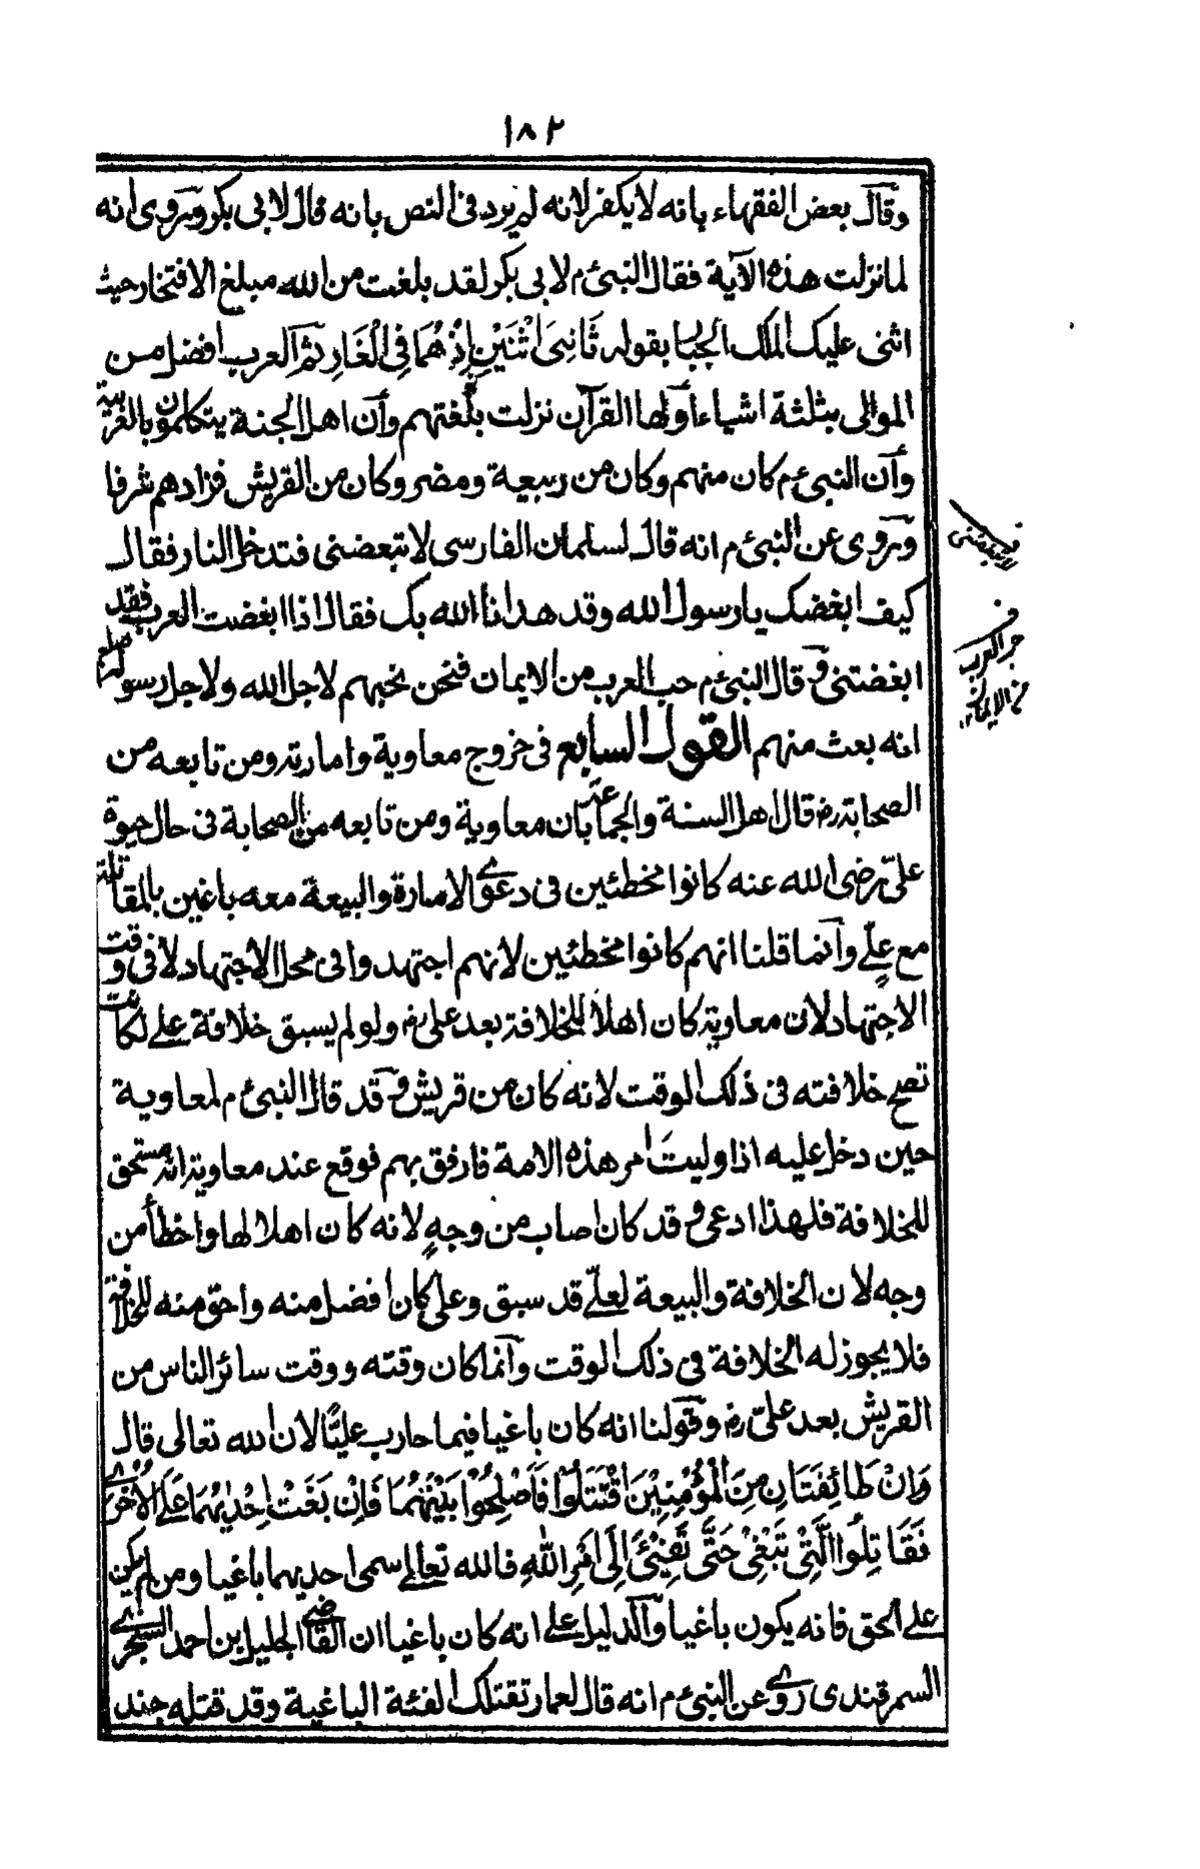 ١٨٢
وقال بعض الفقهاء بانه لا يكفر لانه لم يرد فى النص بانه قال لابى بكر ويروى انه
لما نزلت هذه الآية فقال النبى ء م لابى بكر لقد بلغت من الله مبلغ الافتخار حيث
اثنى عليك الملك الجبار بقوله ثَانِىَ اثْنَيْنِ إِذْ هُمَا فِى الْغَارِ ثم العرب افضل من
الموالى بثلثة اشياء اولها القرآن نزلت بلغتهم وان اهل الجنة يتكلمون بالعربية
وان النبى ء م كان منهم وكان من ربيعة ومضر وكان من القريش فزادهم شرفا
ويروى عن النبى ء م انه قال لسلمان الفارسى لا تبغضنى فتدخل النار فقال
كيف ابغضك يا رسول الله وقد هدانا الله بك فقال اذا ابغضت العرب فقد
ابغضتنى وقال النبى ء م حب العرب من الايمان فنحن نحبهم لاجل الله ولاجل رسوله
انه بعث منهم القول السابع فى خروج معاوية وامارته ومن تابعه من
الصحابة رض قال اهل السنة والجماعة بان معاوية ومن تابعه من الصحابة فى حال حيوة
علىّ رضى الله عنه كانوا مخطئين فى دعوى الامارة والبيعة معه باغين بالمقاتلة
مع علىٍ وانما قلنا انهم كانوا مخطئين لانهم اجتهدوا فى محل الاجتهاد لا فى وقت
الاجتهاد لان معاوية كان اهلا للخلافة بعد على رض ولو لم يسبق خلافة على لكانت
تصح خلافته فى ذلك الوقت لانه كان من قريش وقد قال النبى ء م لمعاوية
حين دخل عليه اذا وليتَ امر هذه الامة فارفق بهم فوقع عند معاوية انه مستحق
للخلافة فلهذا ادعى وقد كان اصاب من وجهٍ لانه كان اهلا لها واخطأ من
وجه لان الخلافة والبيعة لعلىّ قد سبق وعلى كان افضل منه واحق منه للخلافة
فلا يجوز له الخلافة فى ذلك الوقت وانما كان وقته ووقت سائر الناس من
القريش بعد علىّ رض وقولنا انه كان باغيا فيما حارب عليًّا لان الله تعالى قال
وَاِنْ طَائِفَتَانِ مِنَ الْمُؤْمِنِيْنَ اقْتَتَلُوْا فَاَصْلِحُوْا بَيْنَهُمَا فَاِنْ بَغَتْ اِحْدٰيهُمَا عَلَى الْاُخْرٰى
فَقَاتِلُوا الَّتِىْ تَبْغِىْ حَتَّى تَفِىْءَ اِلَى اَمْرِ اللّٰهِ فالله تعالى سمى احديهما باغيا ومن لم يكن
على الحق فانه يكون باغيا والدليل على انه كان باغيا ان القاضى الجليل بن احمد السنجرى
السمرقندى روى عن النبى ء م انه قال لعمار تقتلك الفئة الباغية وقد قتله جند
حب العرب
من الايمان